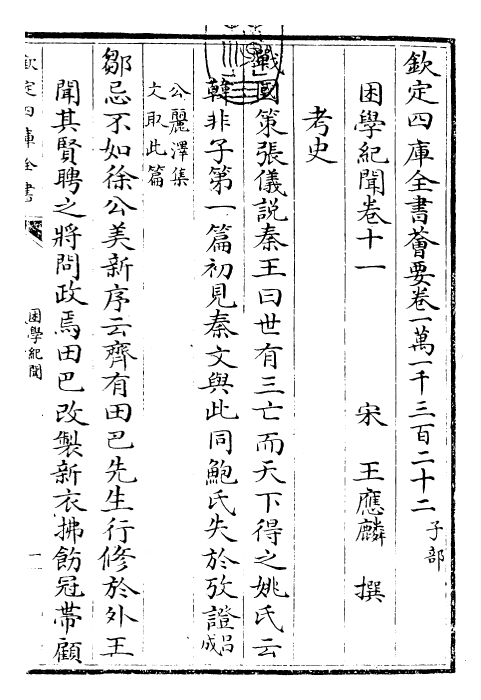 欽定四庫全書薈要卷一萬一千三百二十二 子部
困學紀聞卷十一 宋 王應麟 撰
考史
戰國策張儀說秦王曰世有三亡而天下得之姚氏云
韓非子第一篇初見秦文與此同鮑氏失於攷證呂成
公麗澤集
文取此篇
鄒忌不如徐公美新序云齊有田巴先生行修於外王
聞其賢聘之將問政焉田巴改製新衣拂飭冠帶顧
欽定四庫全書
困學紀聞
一